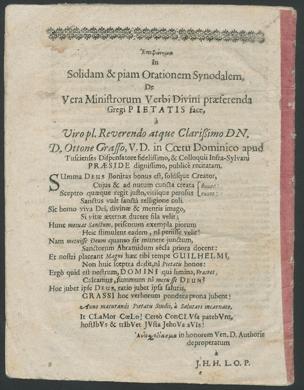 In
Solidam & piam Orationem Synodalem,
De
Vera Ministrorum Verbi Divini præferenda
Gregi PIETATIS face,
à
Viro pl. Reverendo atque Clarissimo DN.
D. Ottone Grasso, V. D. in Cœtu Dominico apud
Tuscienses Dispensatore fidelissimo, & Colloquii Infra-Sylvani
PRÆSIDE dignissimo, publicè recitatam.
SUmma DEUS Bonitas bonus est, solidisque Creator,
Cujus & ad nutum cuncta creata
Sceptro quæque regit justo, vitiisque perosus
Sanctus vult sancta religione coli.
Sic homo viva Dei, divinæ & mentis imago,
Si vitæ æternæ ducere fila velit;
Hunc Sanctum, priscorum exempla piorum
Heic stimulent eadem, ni periisse velit!
Nam Deum quamvis sit munere junctum,
Sanctorum Abramidum sêcla priora docent:
Et nostri placeant Magni hæc tibi tempe GUILHELMI,
Non huic sceptra dedit, ni Pietatis honor:
Ergò quid est nostrum, DOMINI qui lumina,
Calcamus, summum ni DEUS?
Hoc jubet ipse DEUS, ratio jubet ipsa salutis,
GRASSI hoc verborum pondera prona jubent!
It CLaMor CœLo! Certò ConCLVsa patebVnt,
hostIbVs & trIbVet JVsta JehoVa
in honorem Ven. D. Authoris
deproperatum
à
J. H. H. L. O. P.